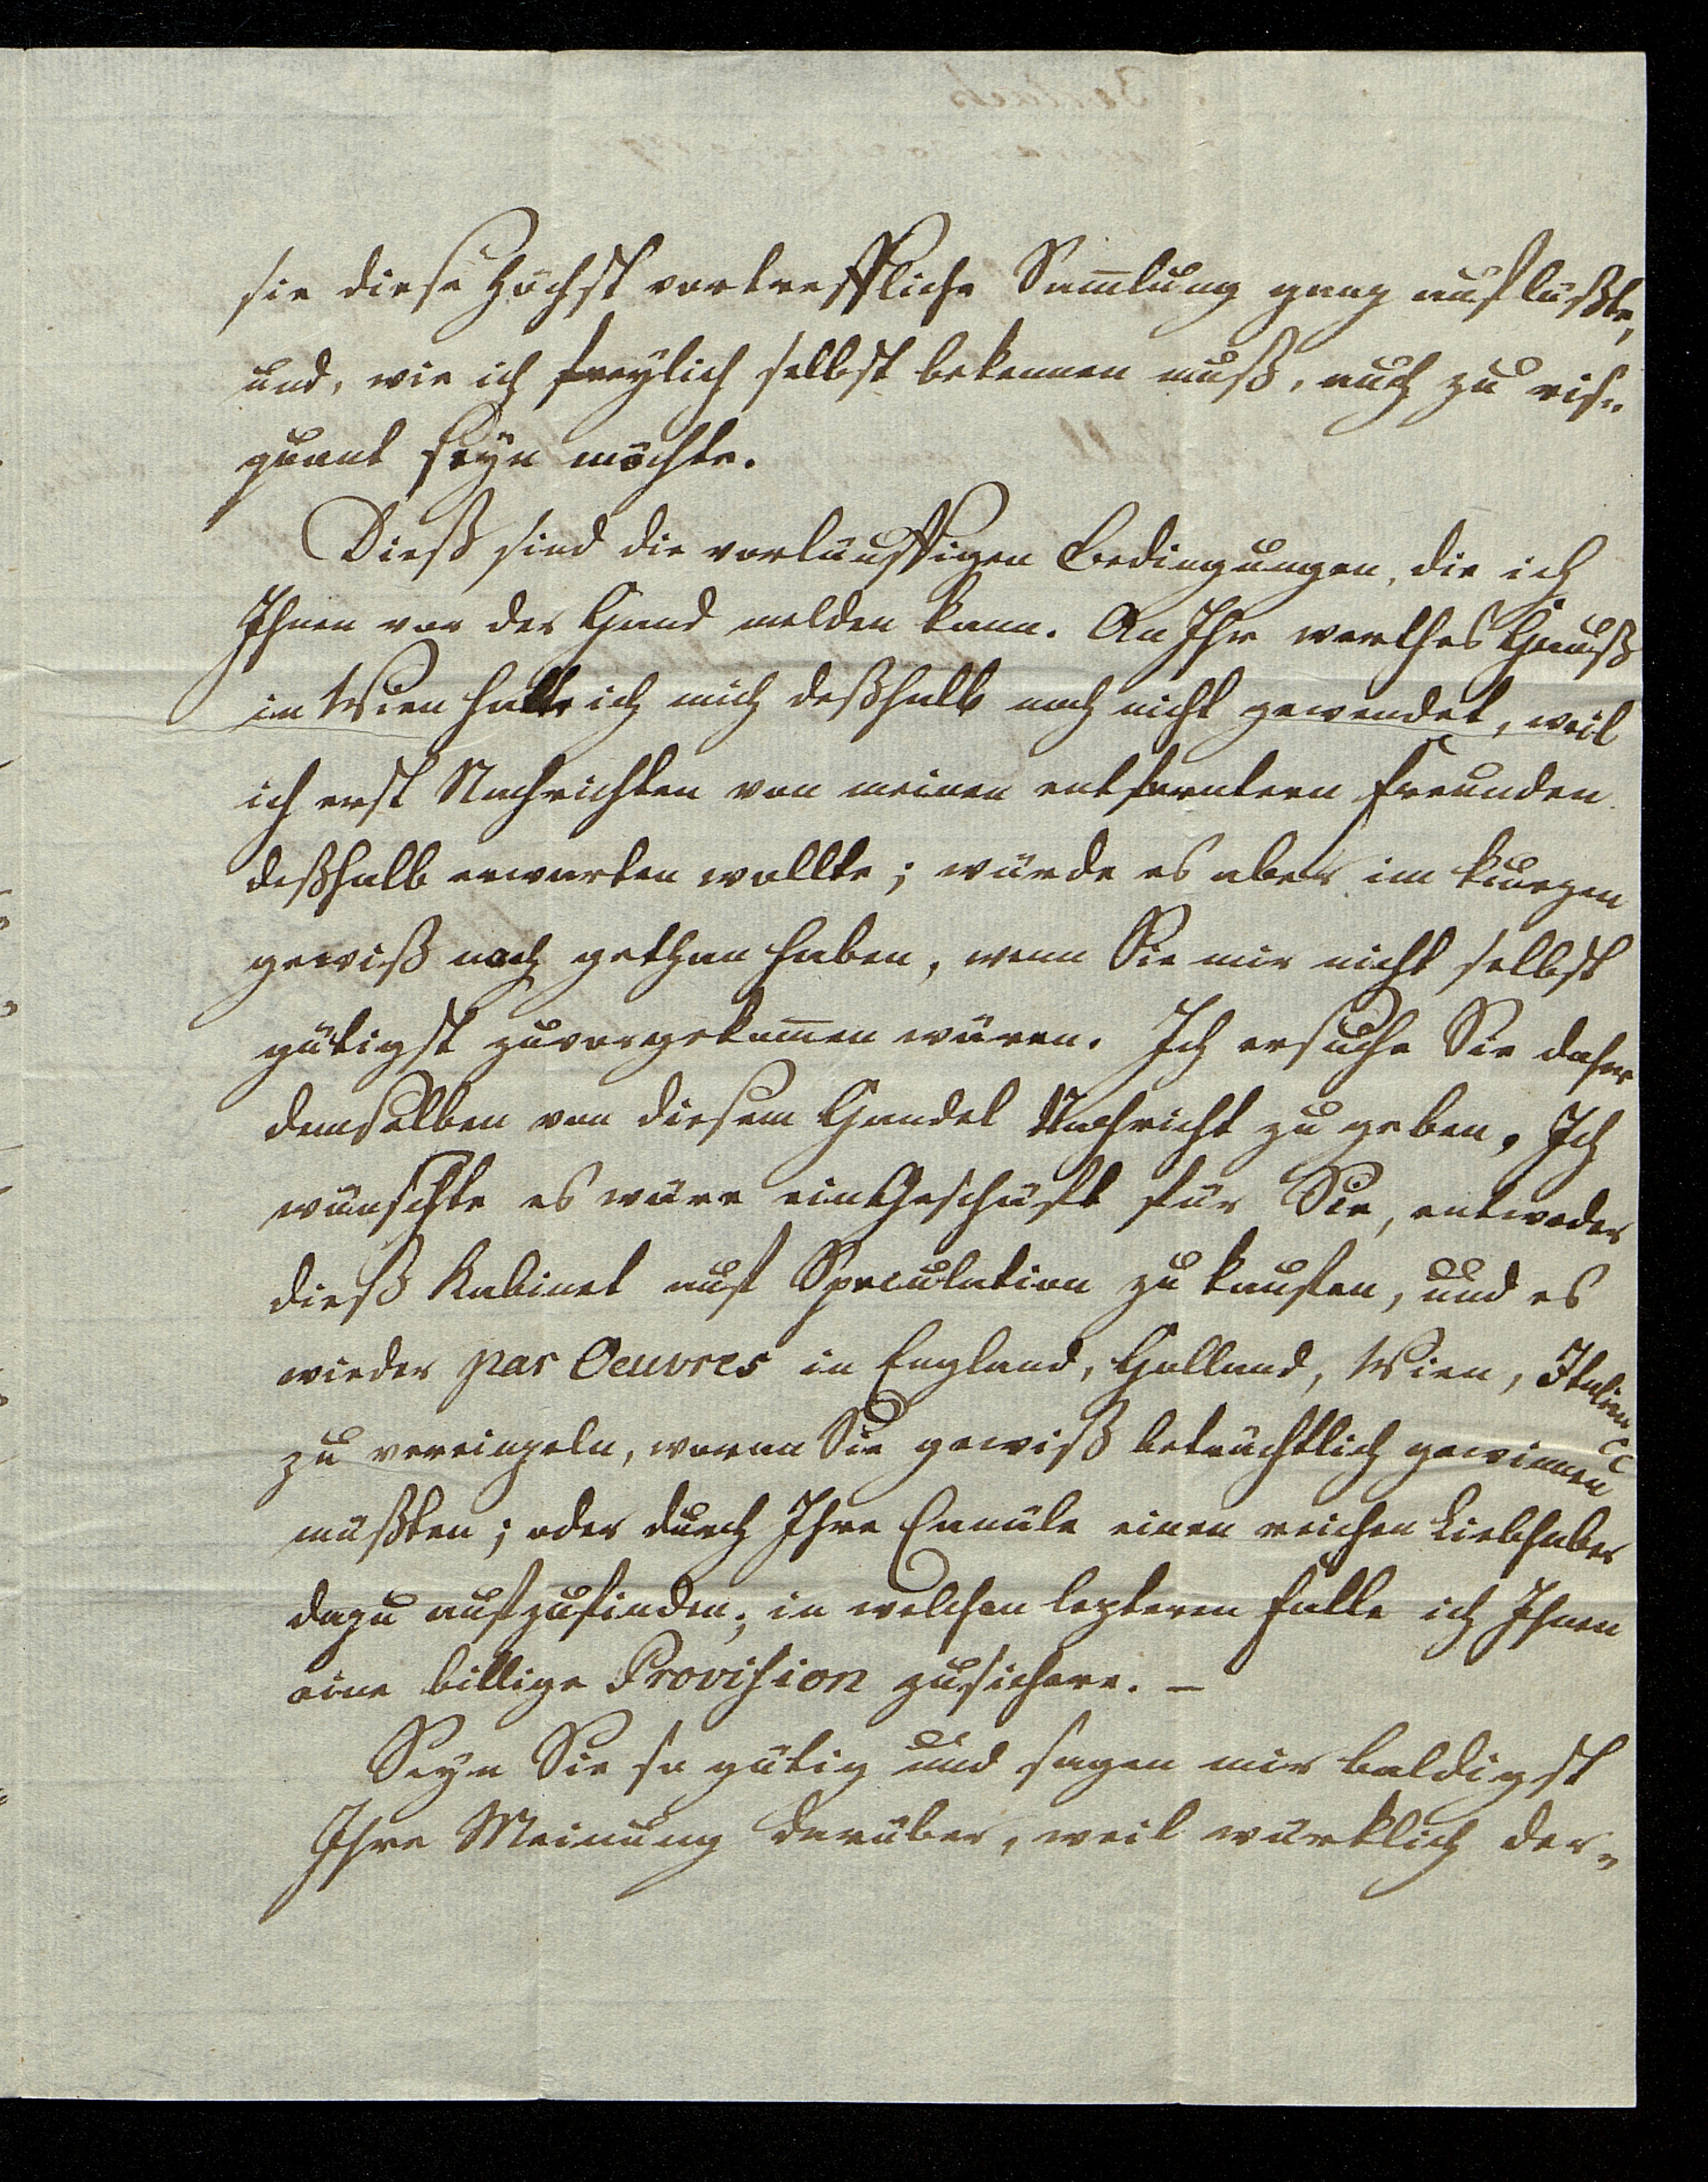 sie diese höchst vortreffliche Sam̄lung ganz auflößte,
und, wie ich freylich selbst bekennen muß, auch zu ris-
quant seyn möchte.
Dieß sind die vorläuffigen Bedingungen, die ich
Ihnen vor der Hand melden kann. An Ihr werthes Hauß
in Wien hatte ich mich deßhalb noch nicht gewendet, weil
ich erst Nachrichten von meinen entferntern Freunden
deßhalb erwarten wollte; würde es aber im kurzen
gewiß noch gethan haben, wenn Sie mir nicht selbst
gütigst zuvorgekom̄en wären. Ich ersuche Sie daher
demselben von diesem Handel Nachricht zu geben. Ich
wünschte es wäre ein Geschäft für Sie, entweder
dieß Kabinet auf Speculation zu kaufen, und es
wieder par Oeuvres in England, Holland, Wien, Italien
zu vereinzeln, woran Sie gewiß beträchtlich gewinnen
müßten; oder durch Ihre Canäle einen reichen Liebhaber
dazu aufzufinden; in welchen lezteren Falle ich Ihnen
eine billige Provision zusichere. –
Seyn Sie so gütig und sagen mir baldigst
Ihre Meinung darüber, weil würklich der-